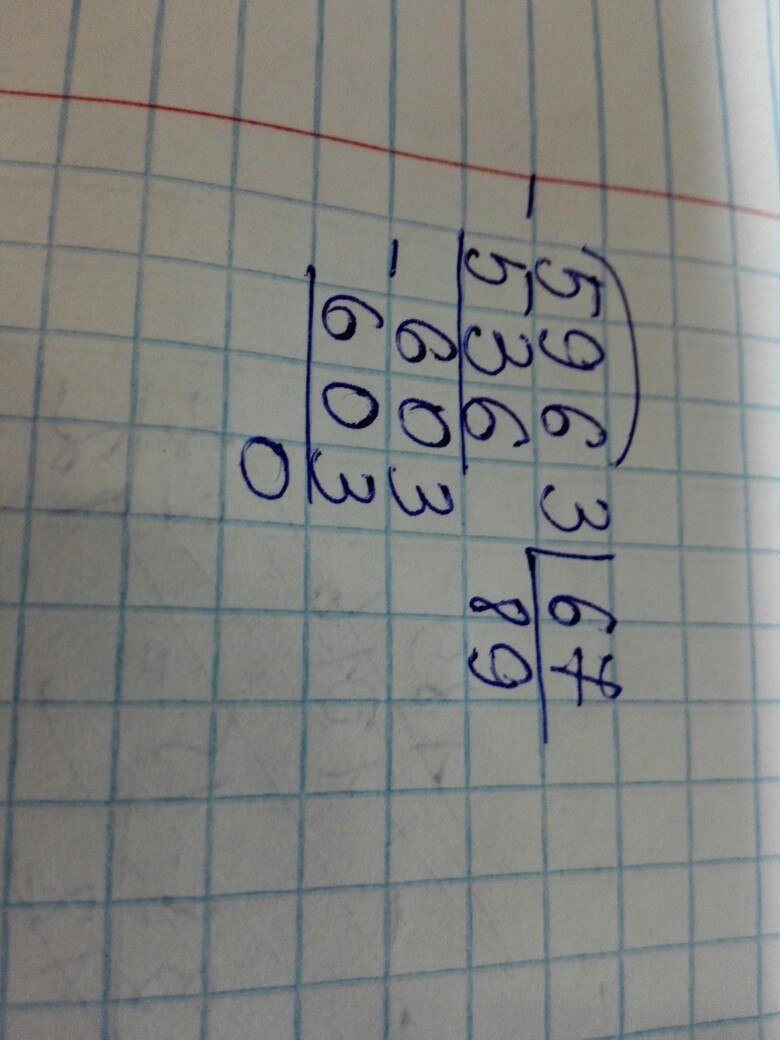 5963 67
- 536 89
- 603
603
0